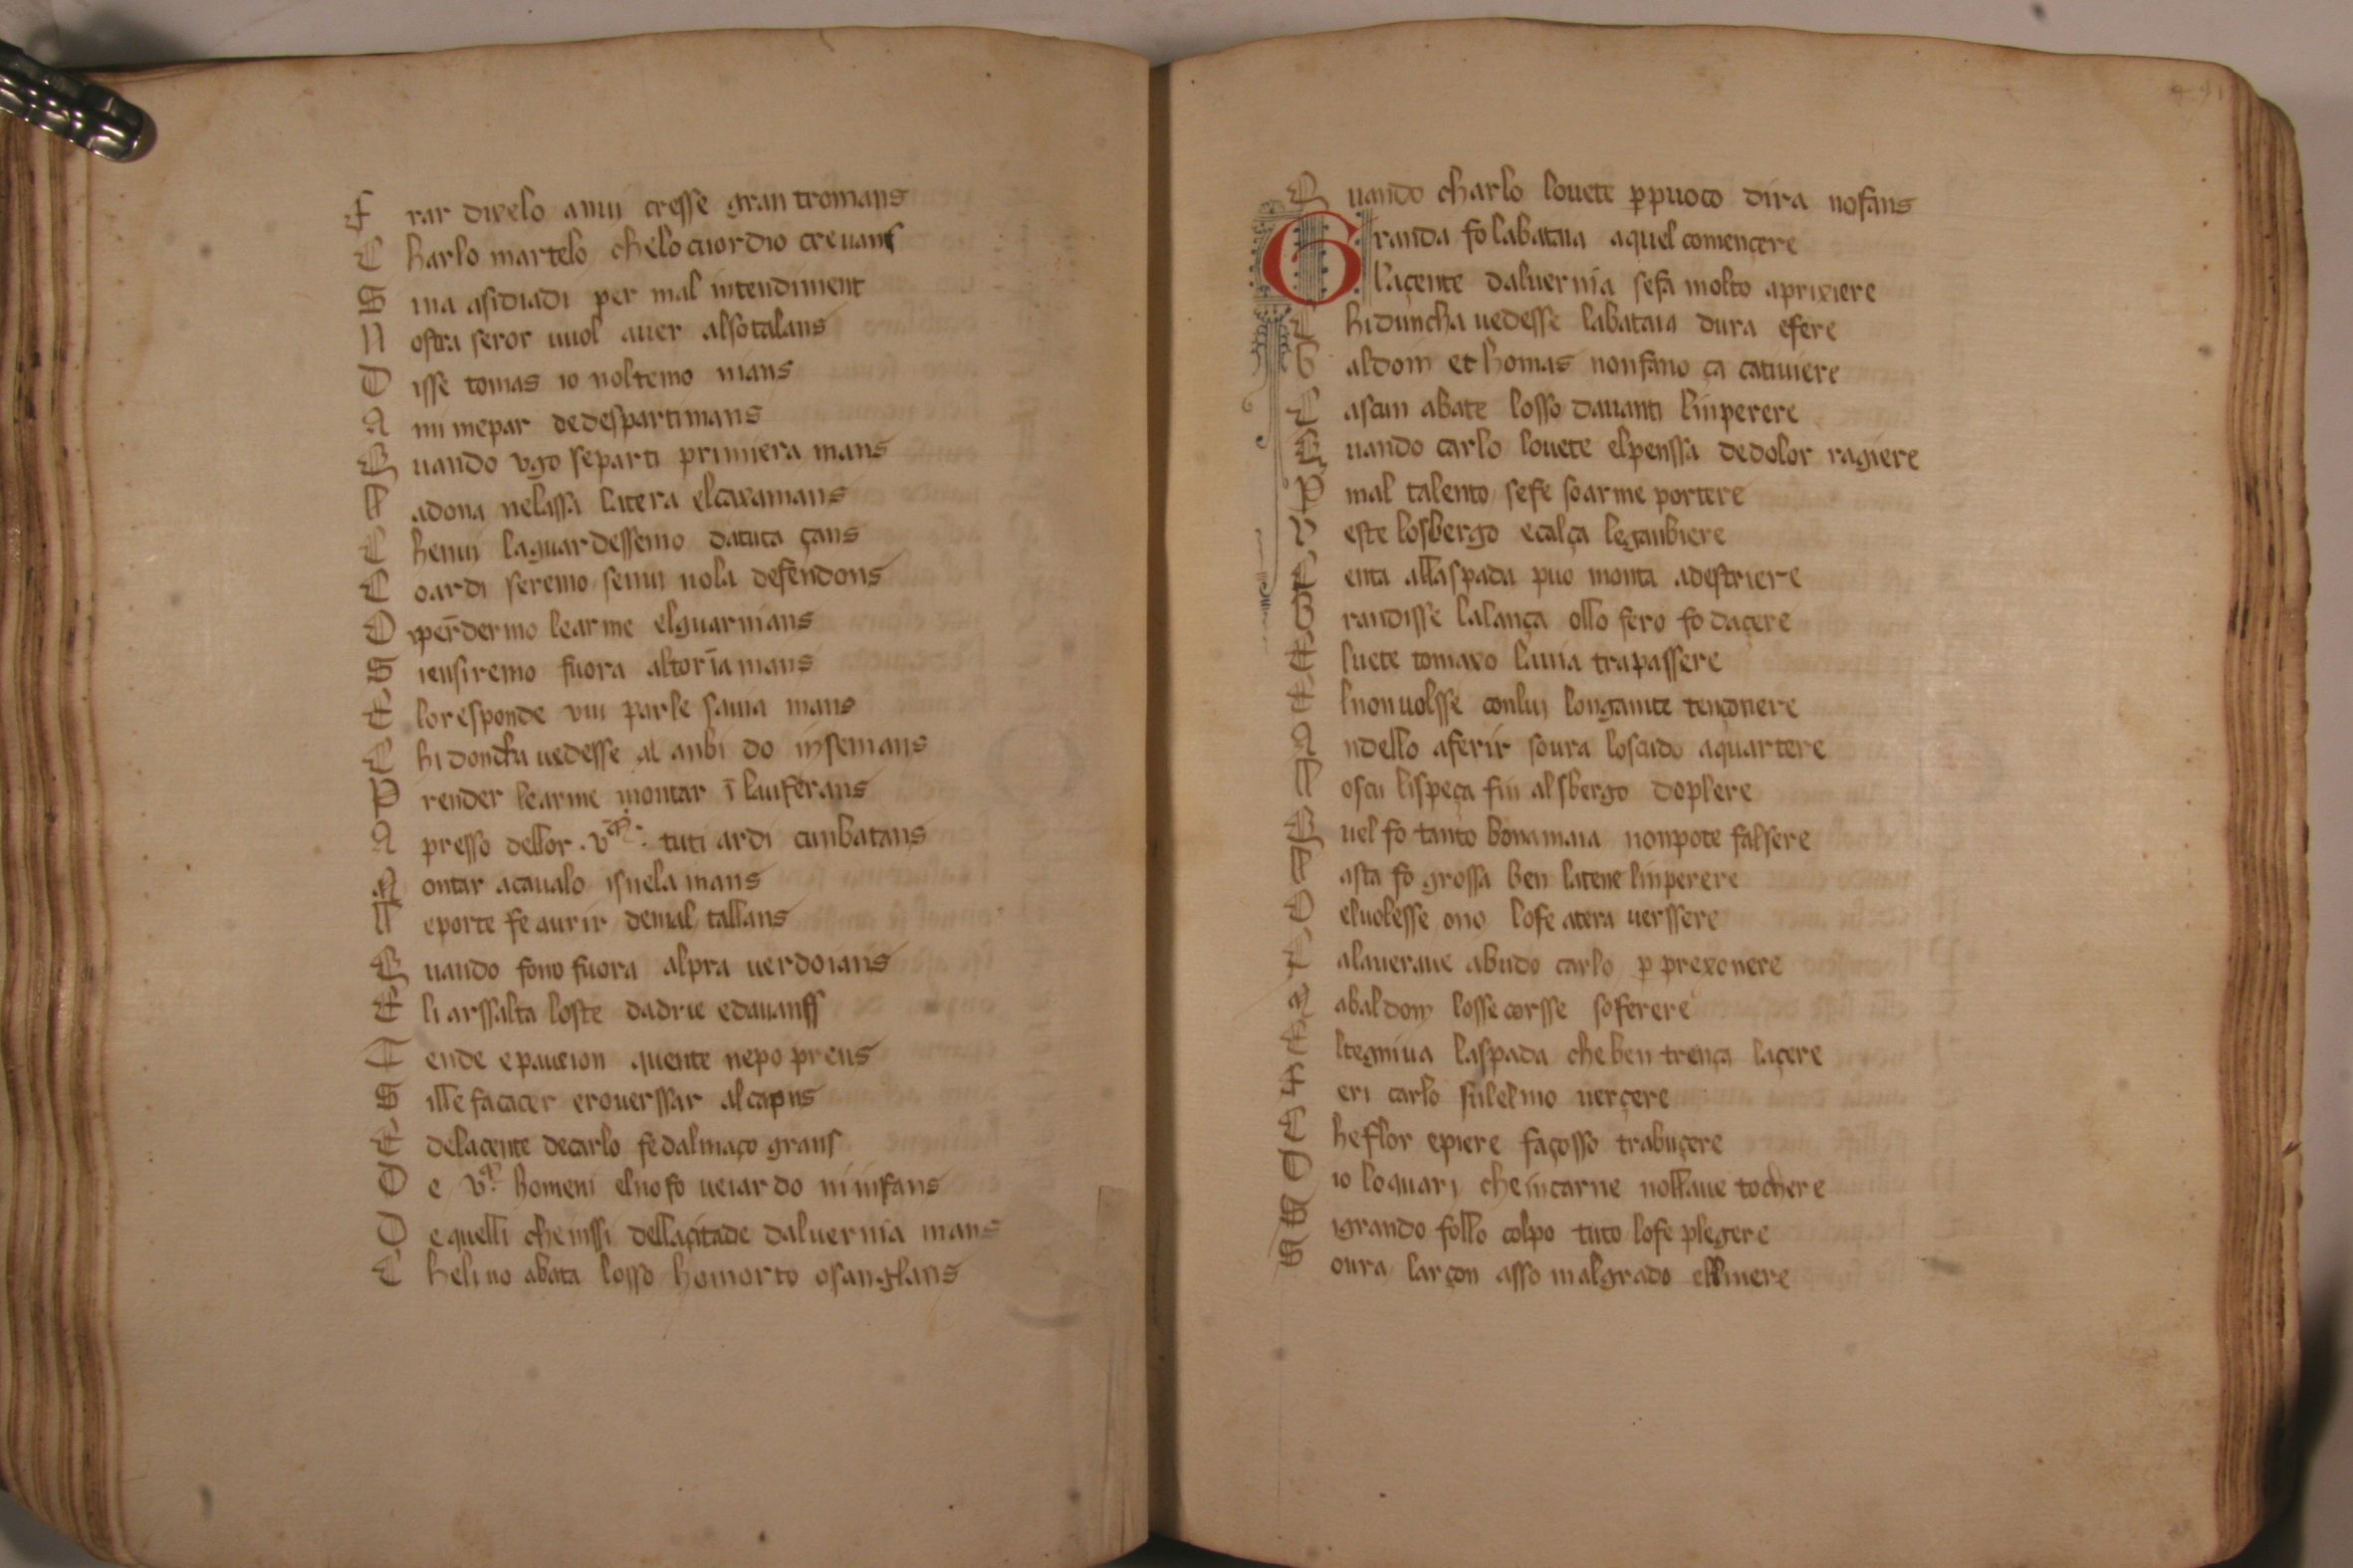 F rar dixelo a nui cresse gran tromans
C harlo martelo chelo cuor dio crevans
S ina asidiadi per mal intendiment
N ostra seror vuol aver also talans
D isse tomas io nol temo nians
A nui mepar dedespartimans
Q uando vgo separti primiera mans
L adona nelassa latera elcaxamans
C henui laguardessemo datuta çans
C oardi seremo senui nola defendons
O r prendermo learme elguarnians
S iensiremo fuora altoria mans
E lo responde vui parle savia mans
C hi doncha vedesse al anbi do insemans
P render learme montar ī lauferans
A presso dellor .v. tuti ardi conbatans
M ontar acavalo isnela mans
L eporte fe avrir demal tallans
Q uando fono fuora alpra verdoians
E li arssalta loste dadrie edavanss
T ende epavion quente nepo prens
S ille fa cacer eroverssar alcapns
E delacente decarlo fe dalmaço grans
D e v. homeni elnofo veiardo ninfans
D e quelli chenssi dellacitade daluernia mans
C helino abata losso ho morto osanglans
Q uando charlo lovete p puoco dira nofans
G randa fo labataia aquel comencere
laçente daluernia sefa molto aprixiere
C hiduncha vedesse labataia dura efere
B aldoin et homas nonfano ça catiuiere
C ascun abate losso davanti linperere
Q uando carlo lovete elpenssa dedolor ragiere
P mal talento sefe soarme portere
V este losbergo ecalça leganbiere
C enta allaspada puo monta adestriere
B randisse lalança ollo fero fo daçere
E luete tomaxo lavia trapassere
E lnon volsse conlui longamte tençonere
A ndello aferir soura loscudo aquartere
L oscu lispeça fin alsbergo doplere
Q uel fo tanto bonamaia nonpote falsere
L asta fo grossa ben latene linperere
O elvolesse ono lofe atera verssere
E alaverave abudo carlo p prexonere
M abaldoin losse corsse soferere
E ltegniva laspada cheben trença laçere
F eri carlo sulelmo verçere
C heflor epiere façosso trabuçere
D io loguari cheincarne nollave tochere
S igrando follo colpo tuto lofe plegere
S oura larçon asso malgrado ellinere